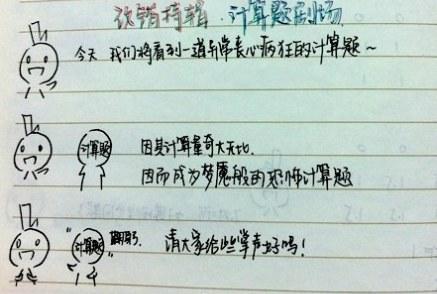 计算题剧场
今天 我们将看到一道非常丧心病狂的计算题~
计算题
因其计算量奇大无比
因而成为梦魇般的恐怖计算题
计算题
请大家给些掌声好吗!